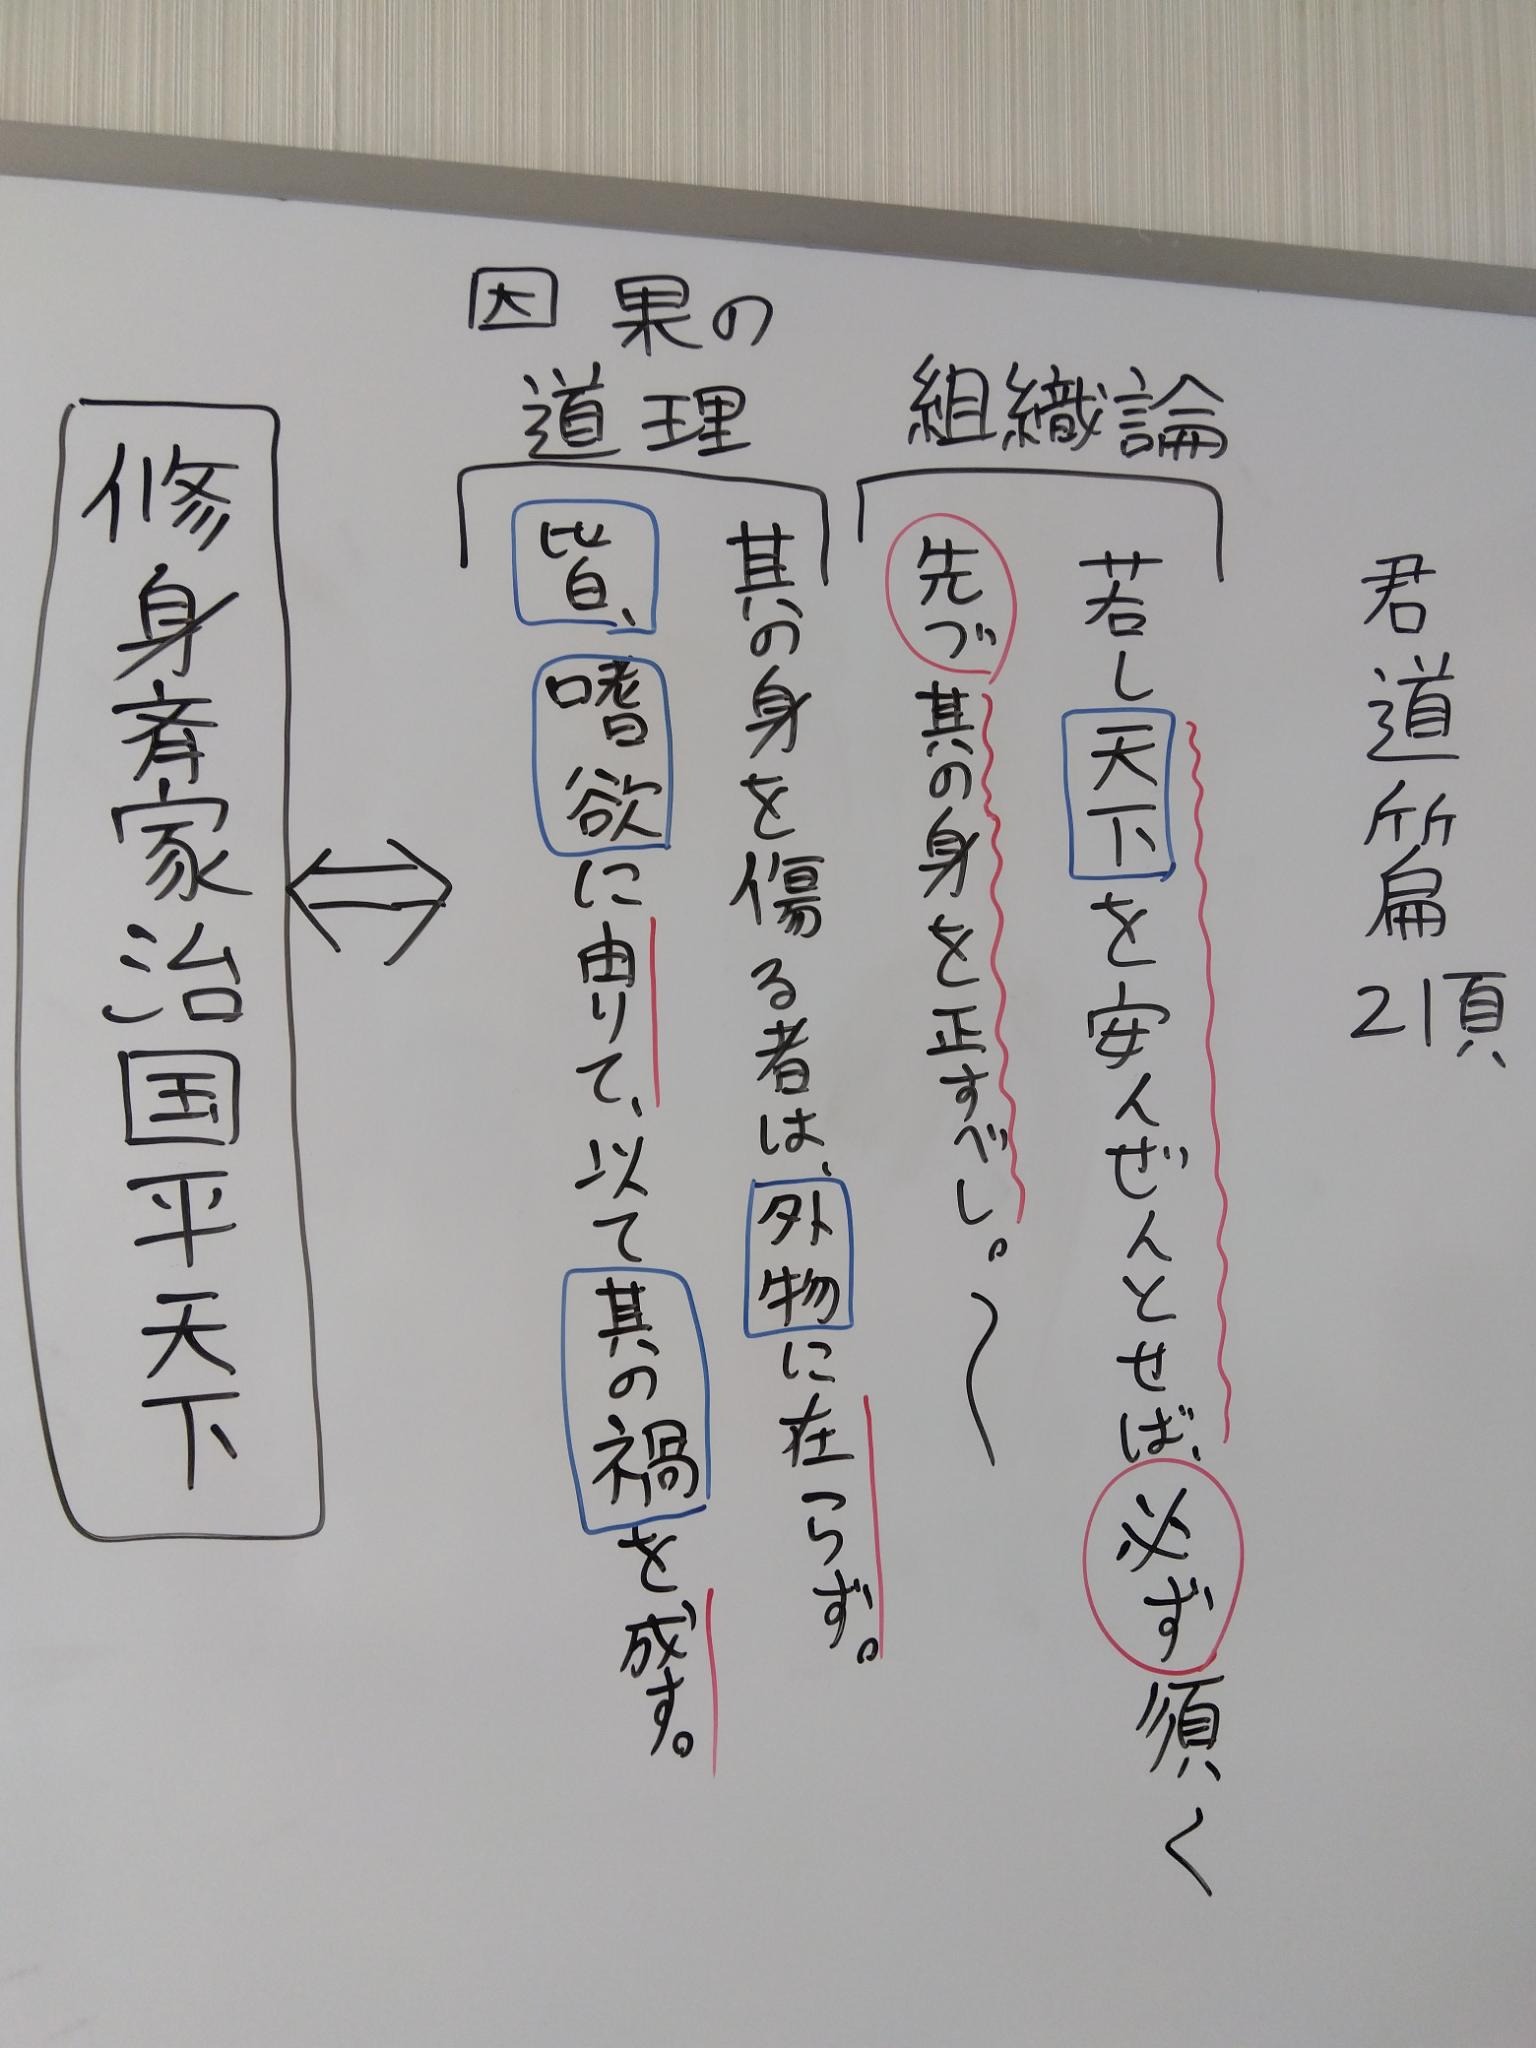 君道篇21頁
組織論
若し天下を安んぜんとせば、必ず須く
先づ其の身を正すべし。〜
因果の
道理
其の身を傷る者は、外物に在らず。
皆、嗜欲に由りて、以て其の禍を成す。
⇔
修身斉家治国平天下